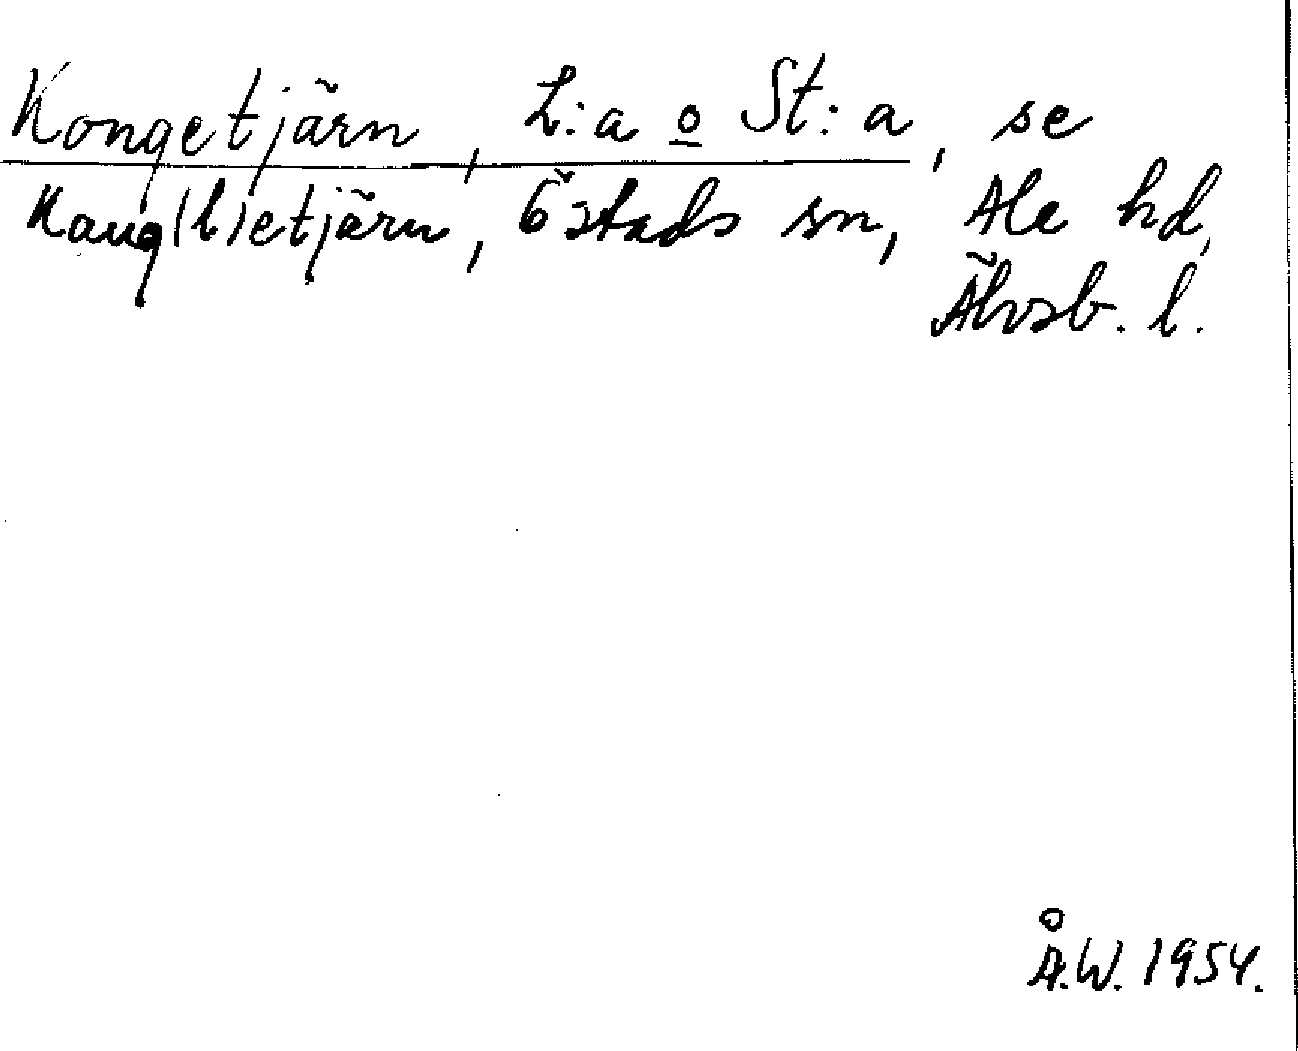 Kongetjärn, L:a o St:a, se
Kang(l)etjärn, Östads sn, Ale hd,
Älvsb. l.
Å.W. 1954.